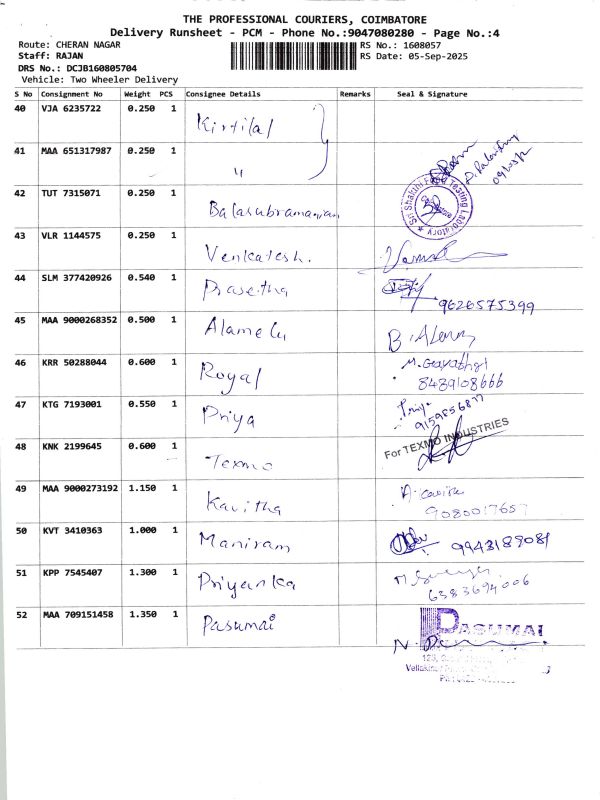 THE PROFESSIONAL COURIERS, COIMBATORE
Delivery Runsheet - PCM - Phone No.:9047080280 - Page No.:4
Route: CHERAN NAGAR
RS No.: 1608057
Staff: RAJAN
RS Date: 05-Sep-2025
DRS No.: DCJB160805704
Vehicle: Two Wheeler Delivery
S No Consignment No Weight PCS Consignee Details Remarks Seal & Signature
40 VJA 6235722 0.250 1 Kirtilal
41 MAA 651317987 0.250 1 "
42 TUT 7315071 0.250 1 Balasubramaniyan
Sri Shakthi Food Testing Laboratory
43 VLR 1144575 0.250 1 Venkatesh.
44 SLM 377420926 0.540 1 Prasetha
9626575399
45 MAA 9000268352 0.500 1 Alamelu
46 KRR 50288044 0.600 1 Royal
8489108666
47 KTG 7193001 0.550 1 Priya Priya
9159856877
48 KNK 2199645 0.600 1 Texmo
For TEXMO INDUSTRIES
49 MAA 9000273192 1.150 1 Kavitha
9080017657
50 KVT 3410363 1.000 1 Maniram
9943189081
51 KPP 7545407 1.300 1 Priyanka
6383694006
52 MAA 709151458 1.350 1 Pasumai
PASUMAI